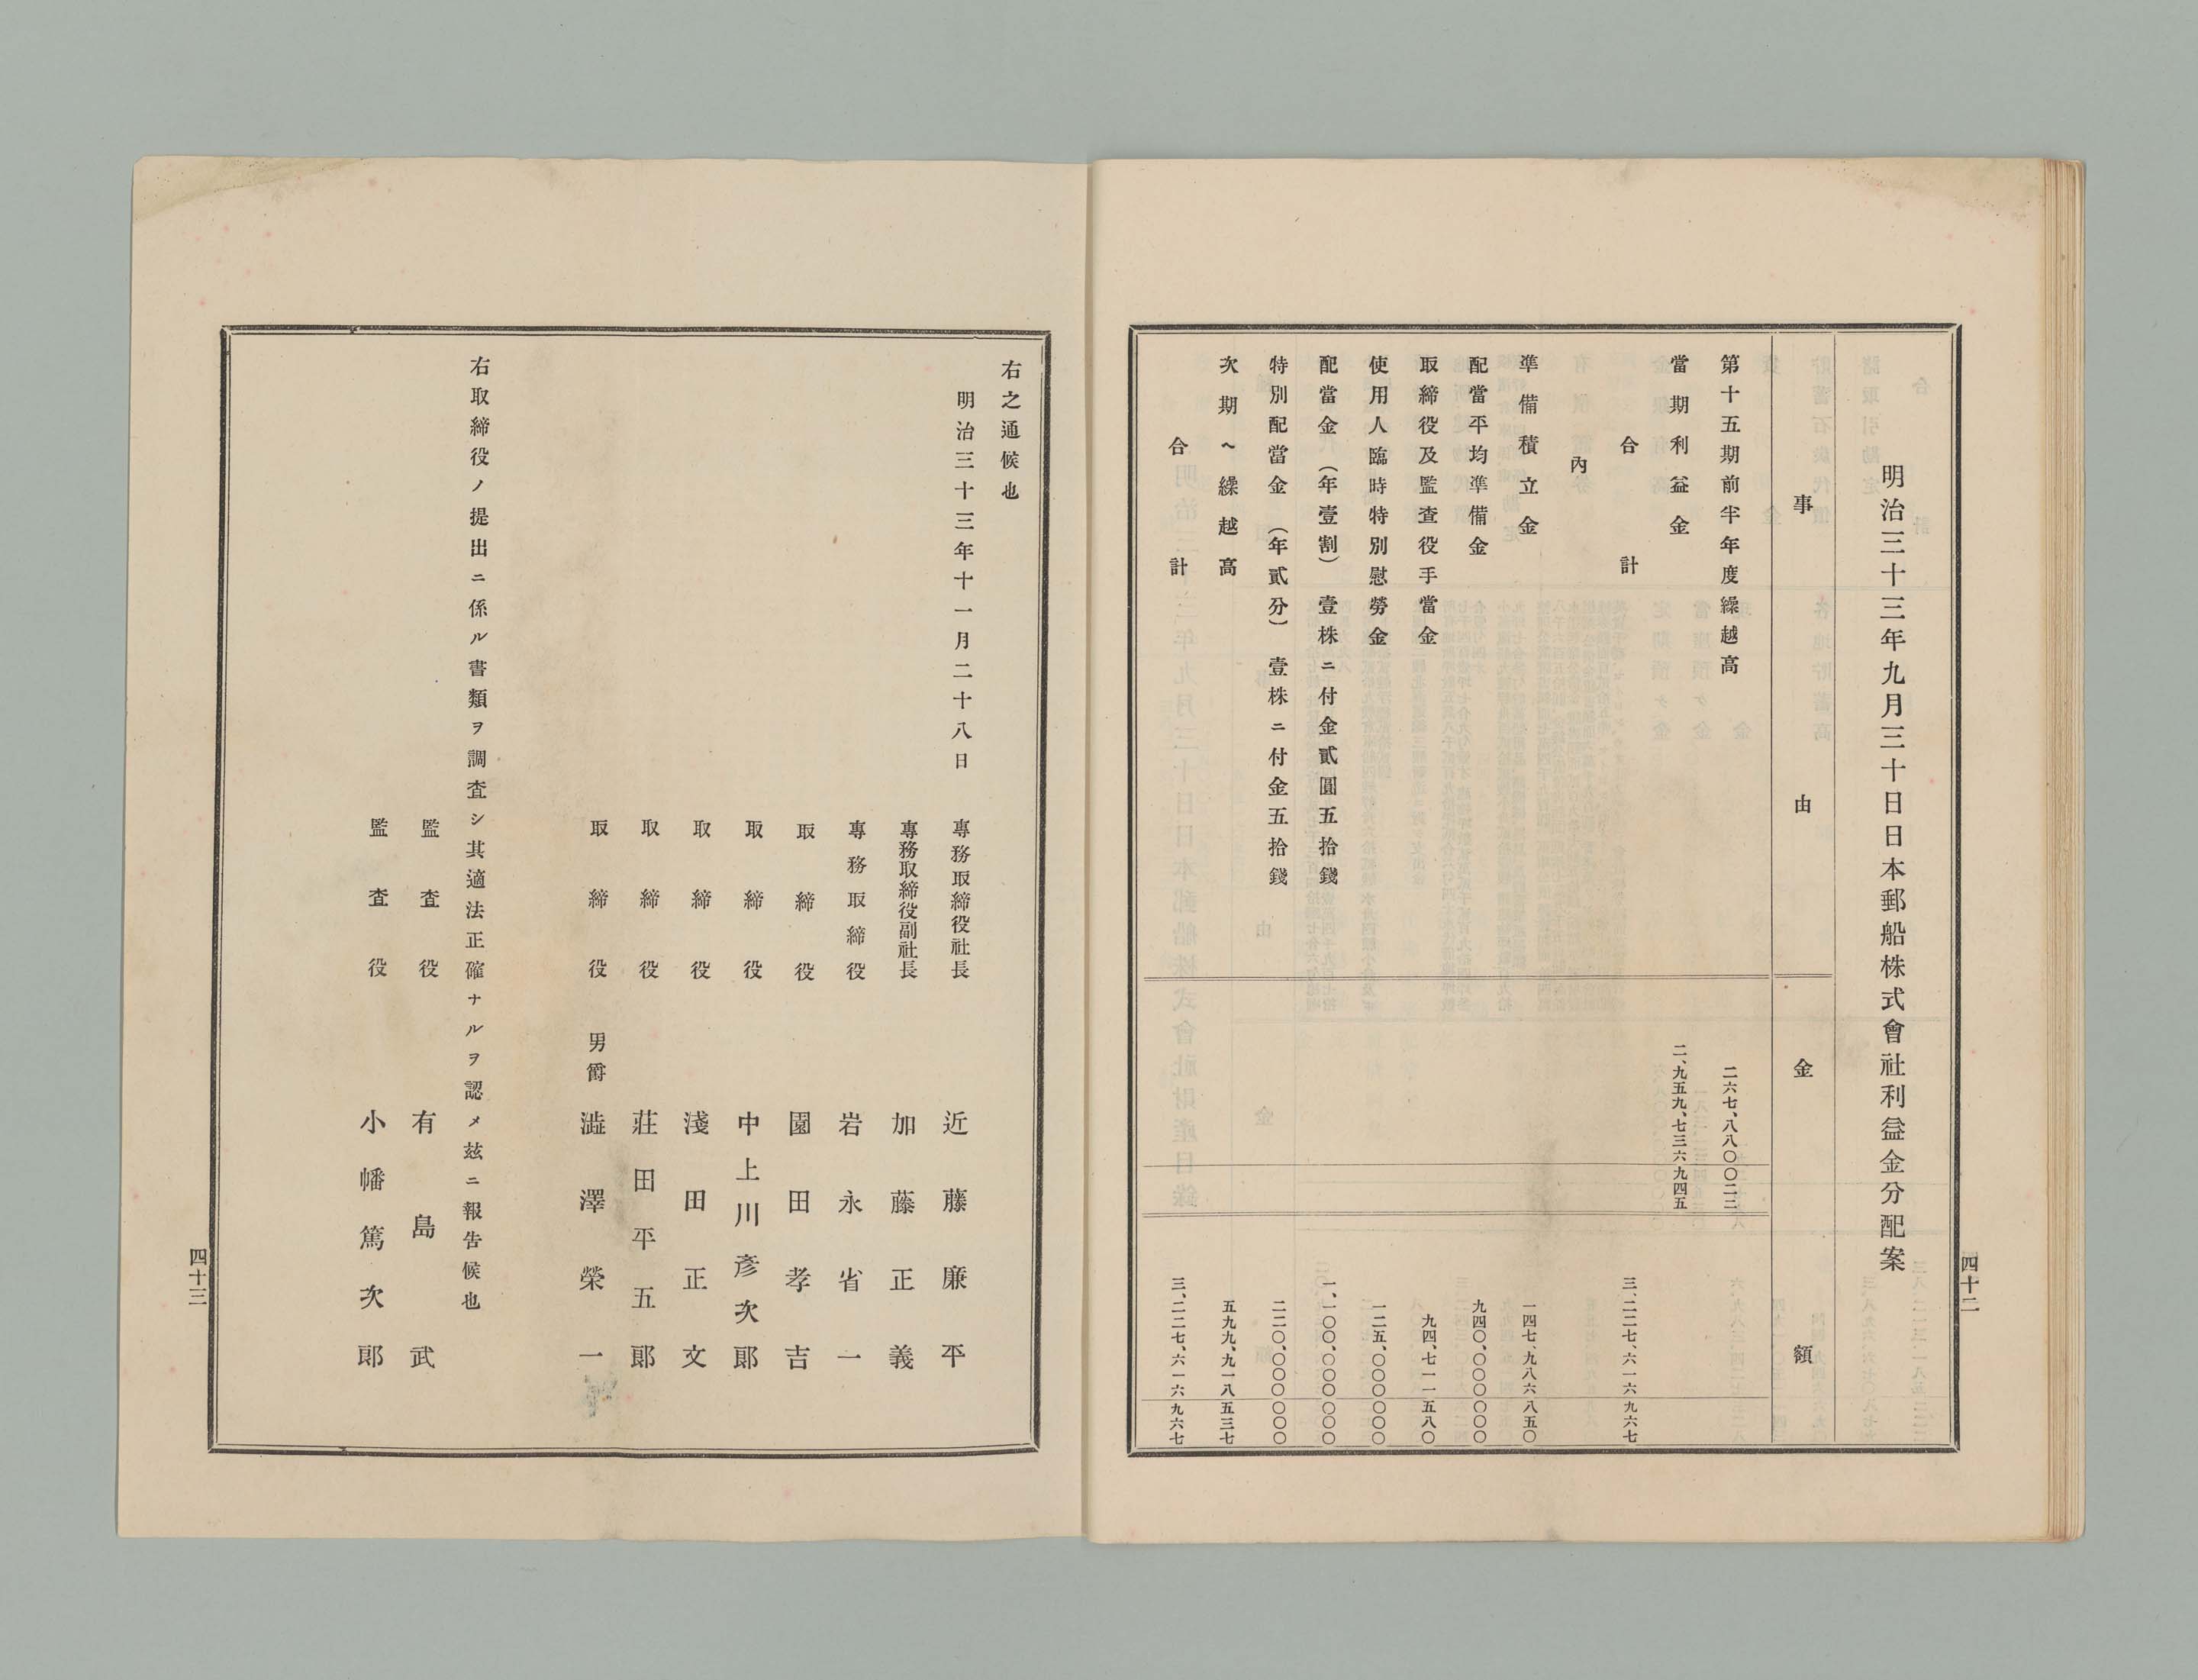 四十二
明治三十三年九月三十日日本郵船株式會社利益金分配案
事由
金額
第十五期前半年度繰越高 二六七、八八〇〇二二
當期利益金 二、九五九、七三六九四五
合計 三、二二七、六一六九六七
內
準備積立金 一四七、九八六八五〇
配當平均準備金 九四〇、〇〇〇〇〇〇
取締役及監査役手當金 九四、七一一五八〇
使用人臨時特別慰勞金 一二五、〇〇〇〇〇〇
配當金(年壹割) 壹株ニ付金貳圓五拾錢 一、一〇〇、〇〇〇〇〇〇
特別配當金(年貳分) 壹株ニ付金五拾錢 二二〇、〇〇〇〇〇〇
次期ヘ繰越高 五九九、九一八五三七
合計 三、二二七、六一六九六七
右之通候也
明治三十三年十一月二十八日
專務取締役社長 近藤廉平
專務取締役副社長 加藤正義
專務取締役 岩永省一
取締役 園田孝吉
取締役 中上川彥次郞
取締役 淺田正文
取締役 莊田平五郞
取締役 男爵 澁澤榮一
右取締役ノ提出ニ係ル書類ヲ調査シ其適法正確ナルヲ認メ玆ニ報告候也
監査役 有島武
監査役 小幡篤次郞
四十三